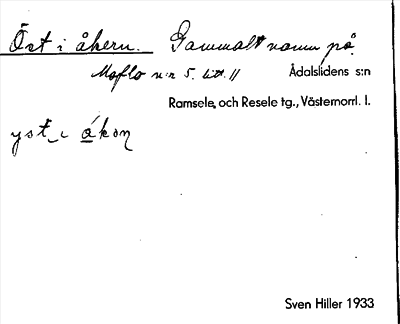 Öst i åkern. Gammalt namn på
Moflo n:r 5. litt. 11 Ådalslidens s:n
Ramsele, och Resele tg., Västernorrl. l.
yst_i ákon
Sven Hiller 1933